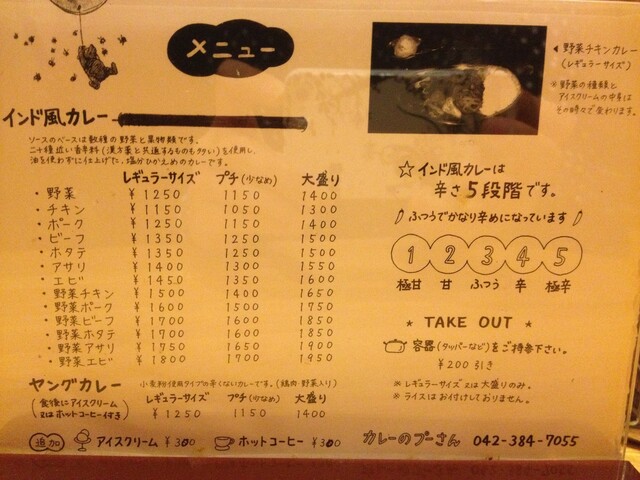 メニュー
◀ 野菜チキンカレー
(レギュラーサイズ)
※ 野菜の種類と
アイスクリームの中身は
その時々で変わります。
インド風カレー
ソースのベースは数種の野菜と果物類です。
二十種近い香辛料(漢方薬と共通するものも多い)を使用し、
油を使わずに仕上げた、塩分ひかえめのカレーです。
レギュラーサイズ プチ(少なめ) 大盛り
・野菜 ¥1250 1150 1400
・チキン ¥1150 1050 1300
・ポーク ¥1250 1150 1400
・ビーフ ¥1350 1250 1500
・ホタテ ¥1350 1250 1500
・アサリ ¥1400 1300 1550
・エビ ¥1450 1350 1600
・野菜チキン ¥1500 1400 1650
・野菜ポーク ¥1600 1500 1750
・野菜ビーフ ¥1700 1600 1850
・野菜ホタテ ¥1700 1600 1850
・野菜アサリ ¥1750 1650 1900
・野菜エビ ¥1800 1700 1950
☆ インド風カレーは
辛さ5段階です。
ふつうでかなり辛めになっています
1 2 3 4 5
極甘 甘 ふつう 辛 極辛
★ TAKE OUT ★
容器(タッパーなど)をご持参下さい。
¥200引き
※ レギュラーサイズ又は大盛りのみ。
※ ライスはお付けしておりません。
ヤングカレー 小麦粉使用タイプの辛くないカレーです。(鶏肉・野菜入り)
(食後にアイスクリーム
又はホットコーヒー付き)
レギュラーサイズ プチ(少なめ) 大盛り
¥1250 1150 1400
追加 アイスクリーム ¥300 ホットコーヒー ¥300 カレーのプーさん 042-384-7055